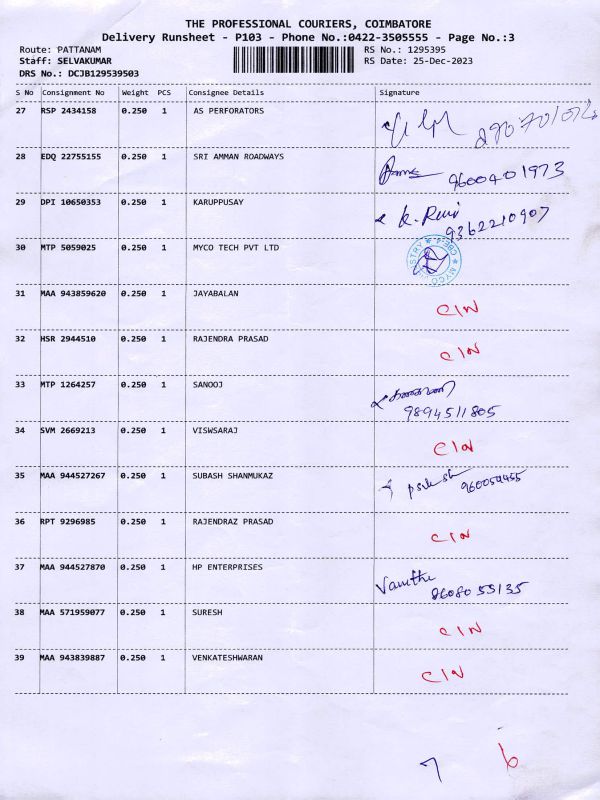 THE PROFESSIONAL COURIERS, COIMBATORE
Delivery Runsheet - P103 - Phone No.:0422-3505555 - Page No.:3
Route: PATTANAM RS No.: 1295395
Staff: SELVAKUMAR RS Date: 25-Dec-2023
DRS No.: DCJB129539503
S No Consignment No Weight PCS Consignee Details Signature
27 RSP 2434158 0.250 1 AS PERFORATORS
28 EDQ 22755155 0.250 1 SRI AMMAN ROADWAYS 9600401973
29 DPI 10650353 0.250 1 KARUPPUSAY K. Ravi 9362210907
30 MTP 5059025 0.250 1 MYCO TECH PVT LTD MYCO
31 MAA 943859620 0.250 1 JAYABALAN CIN
32 HSR 2944510 0.250 1 RAJENDRA PRASAD CIN
33 MTP 1264257 0.250 1 SANOOJ 9894511805
34 SVM 2669213 0.250 1 VISWSARAJ CIN
35 MAA 944527267 0.250 1 SUBASH SHANMUKAZ
36 RPT 9296985 0.250 1 RAJENDRAZ PRASAD CIN
37 MAA 944527870 0.250 1 HP ENTERPRISES Vanitha 8608055135
38 MAA 571959077 0.250 1 SURESH CIN
39 MAA 943839887 0.250 1 VENKATESHWARAN CIN
7 6